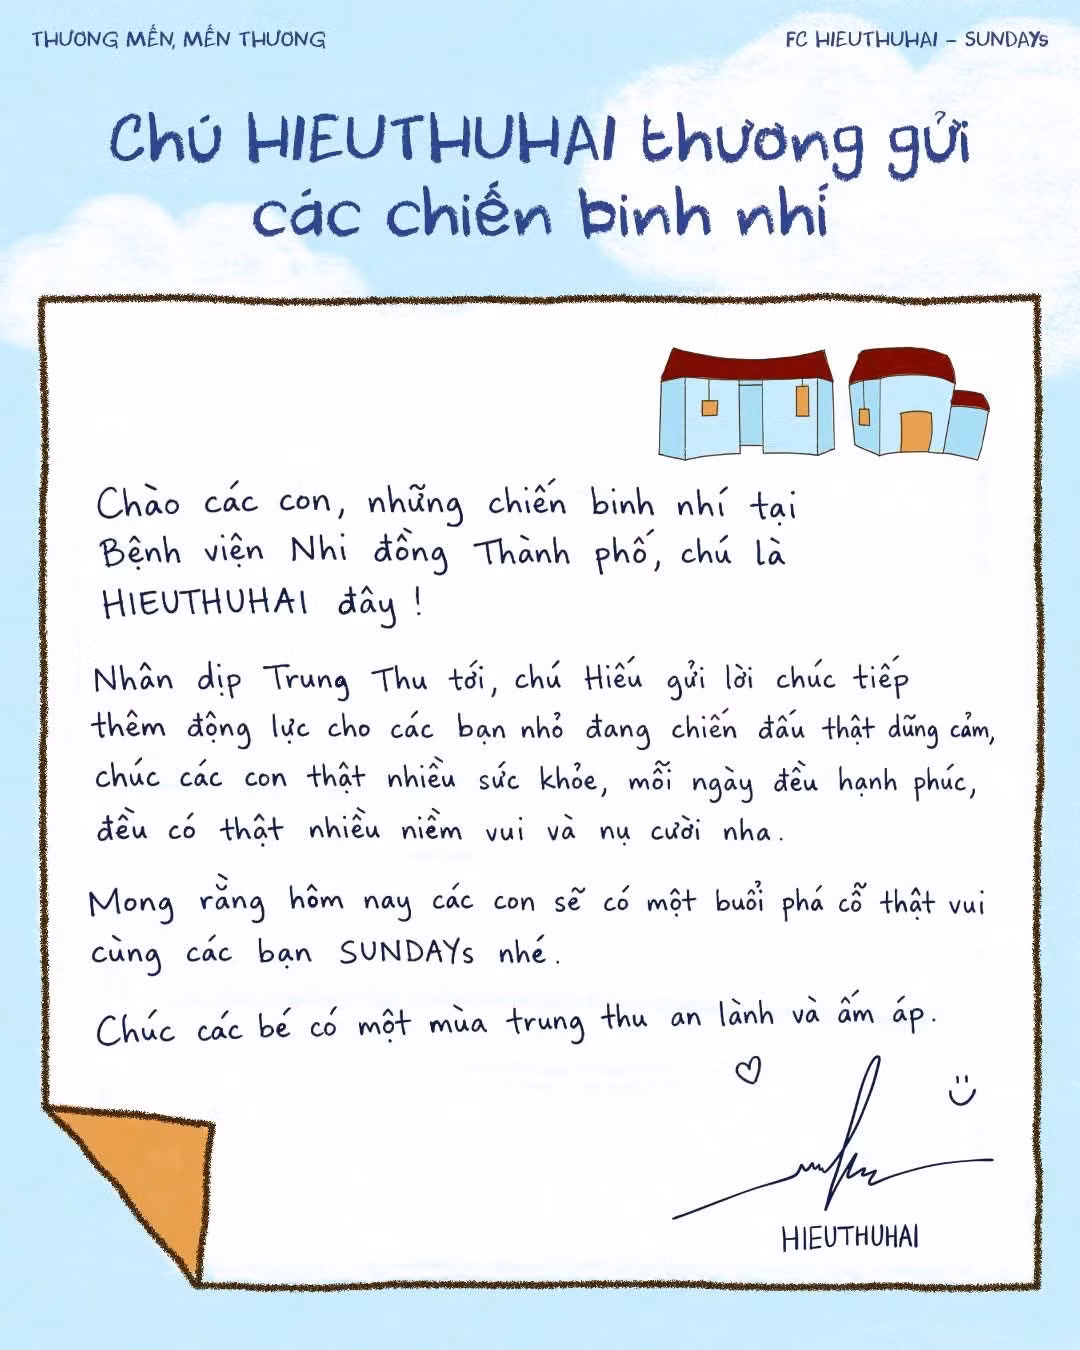 THƯƠNG MẾN, MẾN THƯƠNG
FC HIEUTHUHAI – SUNDAYs
Chú HIEUTHUHAI thương gửi
các chiến binh nhí
Chào các con, những chiến binh nhí tại
Bệnh viện Nhi đồng Thành phố, chú là
HIEUTHUHAI đây !
Nhân dịp Trung Thu tới, chú Hiếu gửi lời chúc tiếp
thêm động lực cho các bạn nhỏ đang chiến đấu thật dũng cảm,
chúc các con thật nhiều sức khỏe, mỗi ngày đều hạnh phúc,
đều có thật nhiều niềm vui và nụ cười nha.
Mong rằng hôm nay các con sẽ có một buổi phá cỗ thật vui
cùng các bạn SUNDAYs nhé.
Chúc các bé có một mùa trung thu an lành và ấm áp.
HIEUTHUHAI